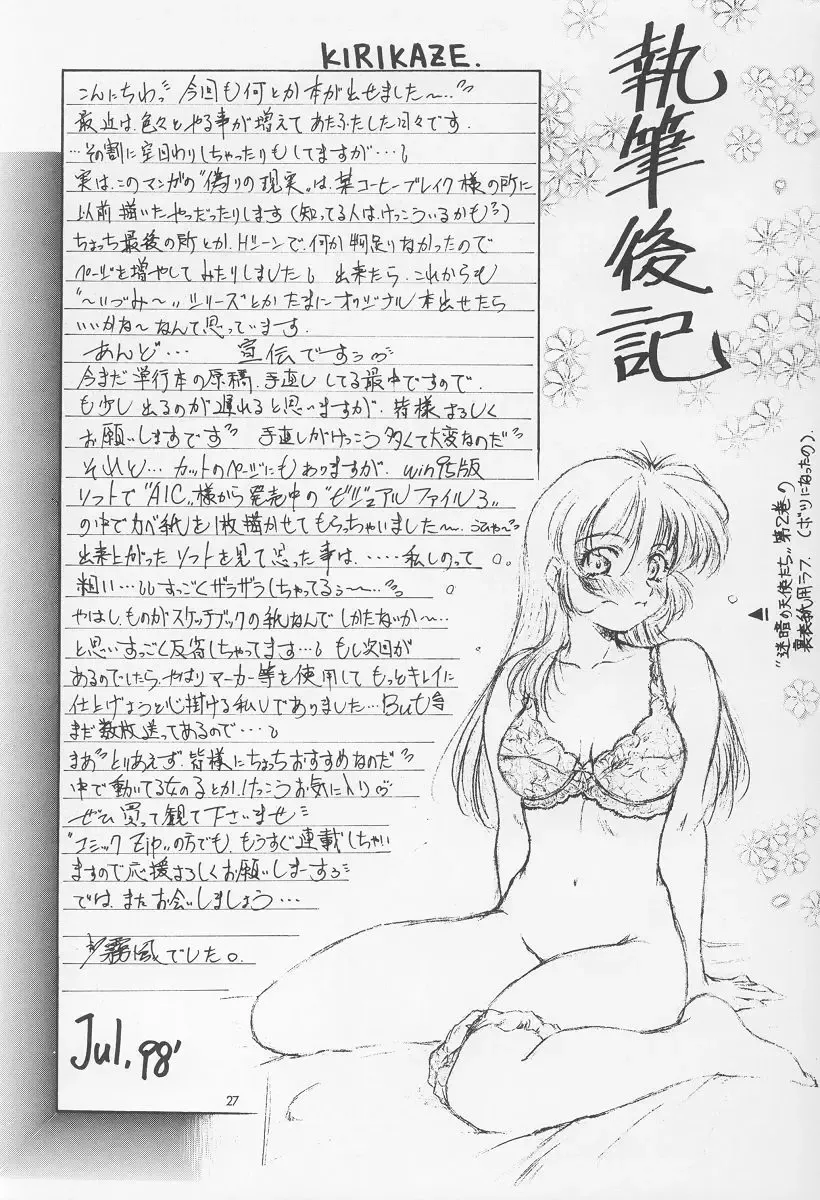 KIRIKAZE.
執筆後記
こんにちわっ 今回も何とか本が出せました〜..
最近は、色々とやる事が増えてあたふたした日々です.
…その割に空回りしちゃったりもしてますが…。
実は、このマンガの"偽りの現実"は、某コーヒーブレイク様の所に
以前描いたやつだったりします(知ってる人はけっこういるかも)
ちょっち最後の所とか、Hシーンで、何か物足りなかったので
ページを増やしてみたりしました。出来たら、これからも
"〜いづみ〜"シリーズとか たまにオリジナル本出せたら
いいかね〜なんて思っています.
あんど… 宣伝ですぅ
今まだ単行本の原稿、手直ししてる最中ですので.
も少し出るのが遅れると思いますが、皆様よろしく
お願いしますです 手直しがけっこう多くて大変なのだ
それと… カットのページにもありますが、win95版
ソフトで"AIC"様から発売中の"ビジュアルファイル3"
の中でカベ紙を1枚描かせてもらっちゃいました〜. うひゃ〜
出来上がったソフトを見て思った事は、....私しのって
粗い… すっごくザラザラしちゃってるぅ〜…
やはし、ものがスケッチブックの紙なんでしかたないか〜…
と思いすっごく反省しちゃってます…。もし次回が
あるのでしたら、やはりマーカー等を使用して もっとキレイに
仕上げようと心掛ける私しでありました…But今
まだ数枚送ってあるので…。
まぁとりあえず、皆様にちょっちおすすめなのだ
中で動いてる女のるとか、けっこうお気に入り
ぜひ買って観て下さいませ
"コミックZip"の方でも、もうすぐ連載しちゃい
ますので応援よろしくお願いしまーすぅ
では、またお会いしましょう…
霧風でした。
Jul. 98'
27
"迷暗の天使たち"第2巻の
裏表紙用ラフ. (ボツになったの).